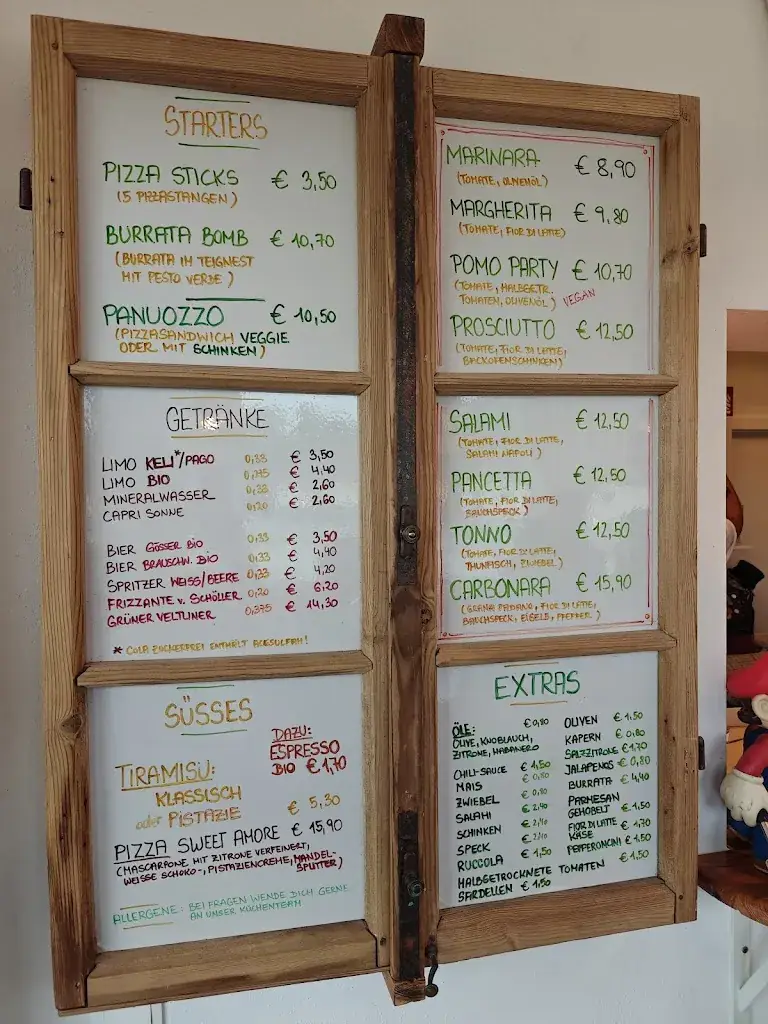 STARTERS
PIZZA STICKS € 3,50
(5 PIZZASTANGEN)
BURRATA BOMB € 10,70
(BURRATA IM TEIGNEST
MIT PESTO VERDE)
PANUOZZO € 10,50
(PIZZASANDWICH VEGGIE
ODER MIT SCHINKEN)
GETRÄNKE
LIMO KELI*/PAGO 0,33 € 3,50
LIMO BIO € 4,40
MINERALWASSER € 2,60
CAPRI SONNE 0,20 € 2,60
BIER GÖSSER BIO 0,33 € 3,50
BIER BRAUSCHN. BIO 0,33 € 4,40
SPRITZER WEISS/BEERE 0,33 € 4,20
FRIZZANTE v. SCHÖLLER 0,20 € 6,20
GRÜNER VELTLINER 0,375 € 14,30
* COLA ZUCKERFREI ENTHÄLT ACESULFAM!
SÜSSES
TIRAMISU:
KLASSISCH
oder PISTAZIE € 5,30
DAZU:
ESPRESSO
BIO € 1,70
PIZZA SWEET AMORE € 15,90
(MASCARPONE MIT ZITRONE VERFEINERT,
WEISSE SCHOKO-, PISTAZIENCREME, MANDEL-
SPLITTER)
ALLERGENE: BEI FRAGEN WENDE DICH GERNE
AN UNSER KÜCHENTEAM
MARINARA € 8,90
(TOMATE, OLIVENÖL)
MARGHERITA € 9,80
(TOMATE, FIOR DI LATTE)
POMO PARTY € 10,70
(TOMATE, HALBGETR.
TOMATEN, OLIVENÖL) VEGAN
PROSCIUTTO € 12,50
(TOMATE, FIOR DI LATTE,
BACKOFENSCHINKEN)
SALAMI € 12,50
(TOMATE, FIOR DI LATTE,
SALAMI NAPOLI)
PANCETTA € 12,50
(TOMATE, FIOR DI LATTE,
BAUCHSPECK)
TONNO € 12,50
(TOMATE, FIOR DI LATTE,
THUNFISCH, ZWIEBEL)
CARBONARA € 15,90
(GRANA PADANO, FIOR DI LATTE,
BAUCHSPECK, EIGELB, PFEFFER)
EXTRAS
ÖLE: € 0,80
OLIVE, KNOBLAUCH,
ZITRONE, HABANERO
CHILI-SAUCE € 1,50
MAIS € 0,80
ZWIEBEL € 0,80
SALAMI € 2,40
SCHINKEN € 2,10
SPECK € 2,10
RUCCOLA € 1,50
HALBGETROCKNETE TOMATEN € 1,50
SARDELLEN € 1,50
OLIVEN € 1,50
KAPERN € 0,80
SALZZITRONE € 1,70
JALAPENOS € 0,80
BURRATA € 4,40
PARMESAN
GEHOBELT € 1,50
FIOR DI LATTE
KÄSE € 1,70
PEPPERONCINI € 1,50